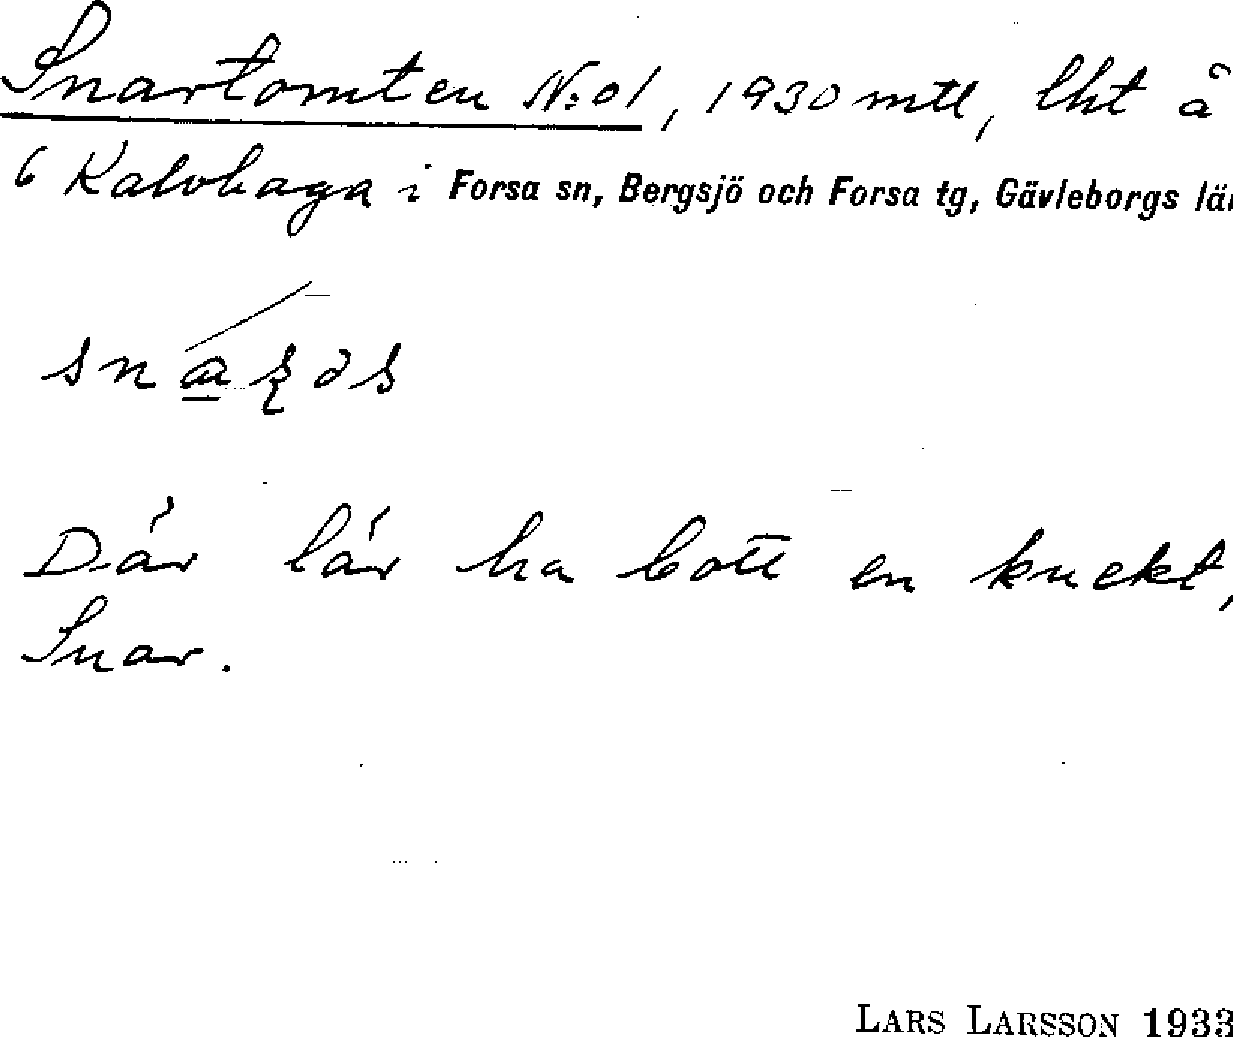 Snartomten N:o 1, 1930 mtl, lht å
6 Kalvhaga i Forsa sn, Bergsjö och Forsa tg, Gävleborgs län
Där lär ha bott en knekt,
Snar.
LARS LARSSON 1933